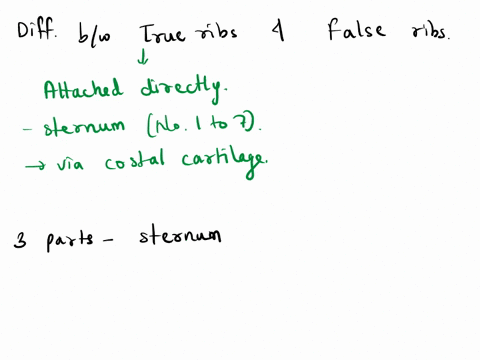 Diff. b/w True ribs & False ribs.
↓
Attached directly.
- sternum (No. 1 to 7).
→ via costal cartilage.
3 parts - sternum